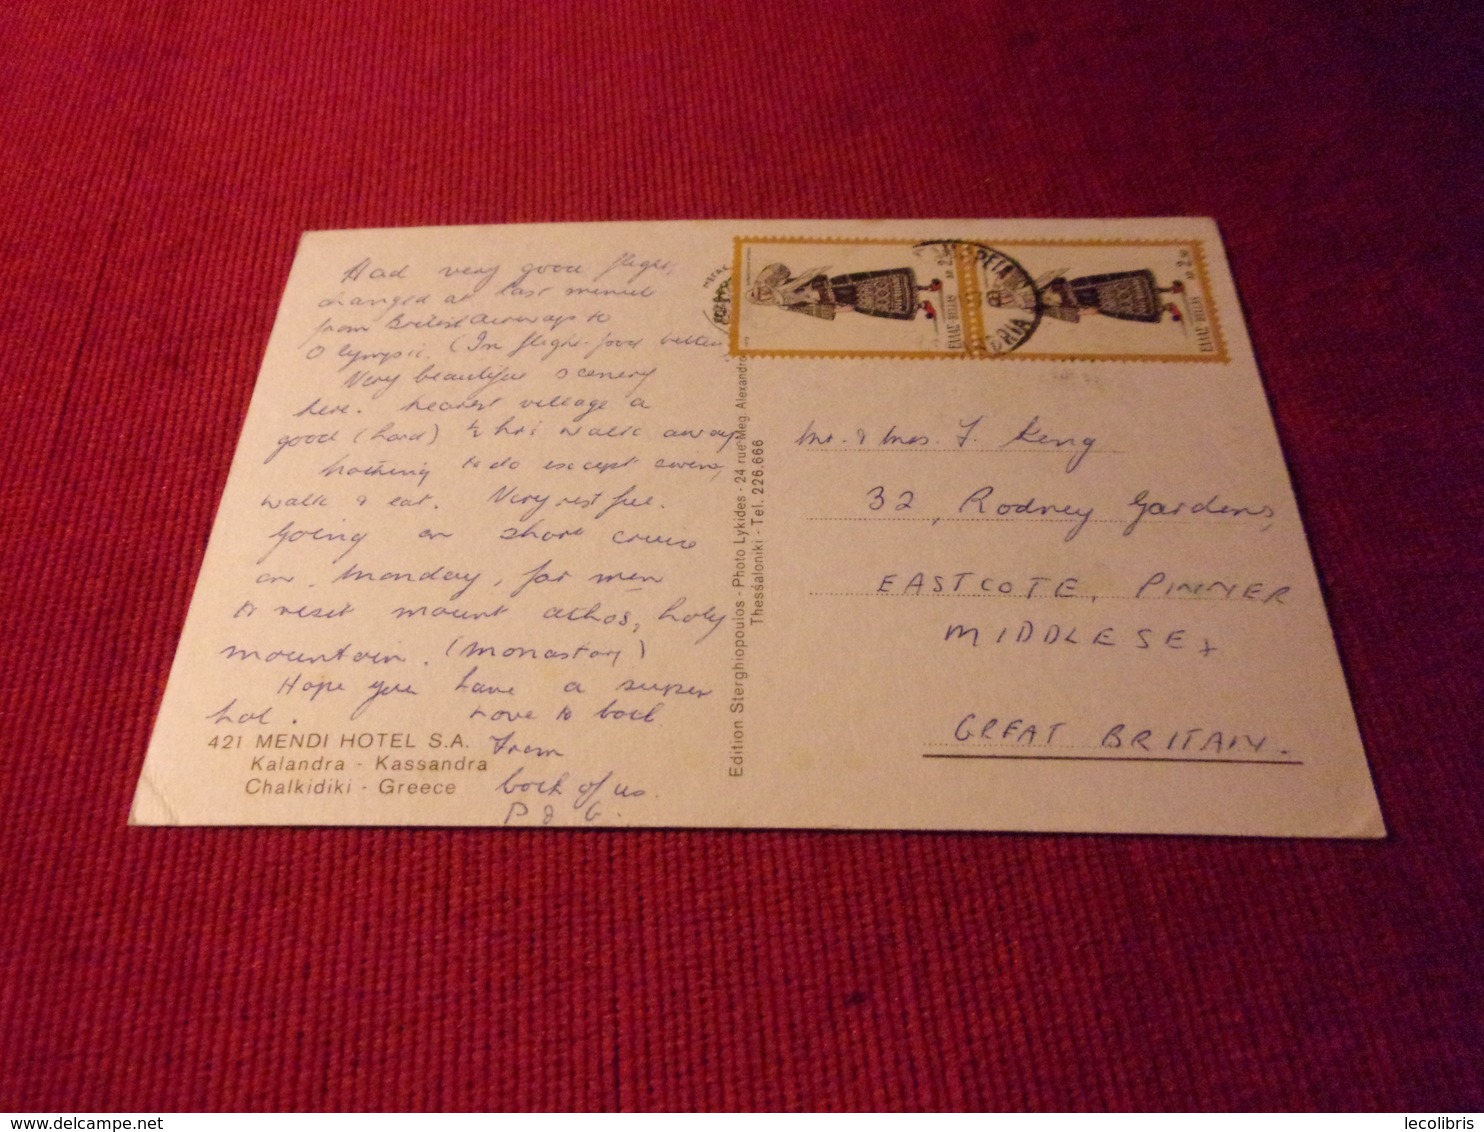 Had very good flight,
changed at last minute
from British Airways to
Olympic. (In flight food better
Very beautiful scenery
here. Nearest village a
good (hard) ½ hr walk away
Nothing to do except swim,
walk & eat. Very restful.
Going on short cruise
on Monday, for men
to visit mount athos, holy
mountain. (Monastery)
Hope you have a super
hol. Love to both
From
both of us.
P & G.
421 MENDI HOTEL S.A.
Kalandra - Kassandra
Chalkidiki - Greece
Edition Sterghiopoulos - Photo Lykides - 24 rue Meg. Alexandrou
Thessaloniki - Tel. 226.666
ΕΛΛΑΣ HELLAS
ΕΛΛΑΣ HELLAS
Mr. & Mrs. F. King
32, Rodney Gardens,
EASTCOTE, PINNER
MIDDLESEX
GREAT BRITAIN.
lecolibris